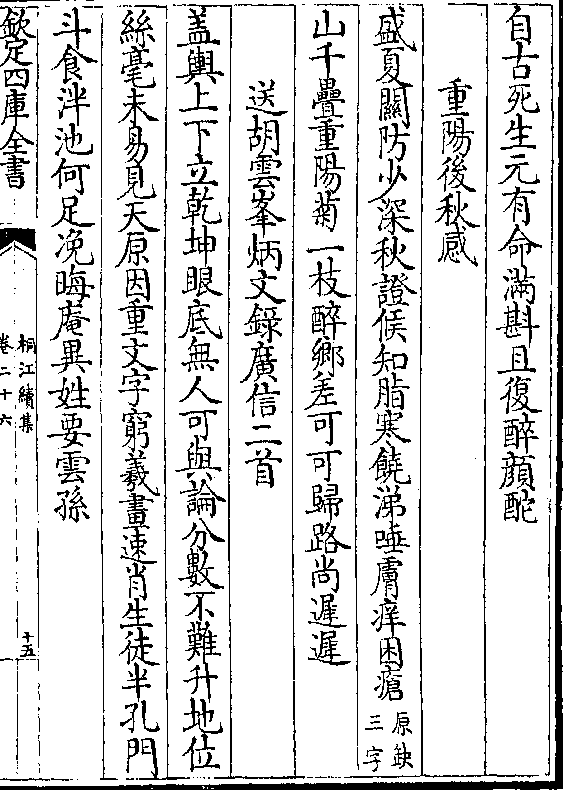 自古死生元有命滿斟且復醉顔酡
重陽後秋感
盛夏關防少深秋證候知脂寒饒涕唾膚痒困瘡原缺三字
山千疊重陽菊一枝醉鄉差可可歸路尚遲遲
送胡雲峯炳文錄廣信二首
盖輿上下立乾坤眼底無人可與論分數不難升地位
絲毫未易見天原因重文字窮羲畫速肖生徒半孔門
斗食泮池何足浼晦庵異姓要雲孫
欽定四庫全書
桐江續集
卷二十六
十五